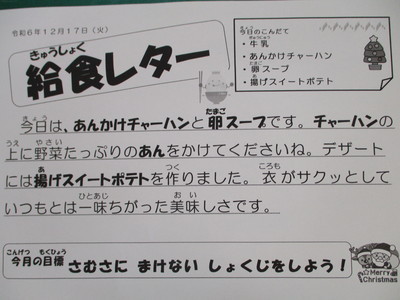 令和6年12月17日（火）
きゅうしょく
給食レター
今日のこんだて
・牛乳
・あんかけチャーハン
・卵スープ
・揚げスイートポテト
今日は、あんかけチャーハンと卵スープです。チャーハンの
上に野菜たっぷりのあんをかけてくださいね。デザート
には揚げスイートポテトを作りました。衣がサクッとして
いつもとは一味ちがった美味しさです。
こんげつ もくひょう
今月の目標 さむさに まけない しょくじをしよう！
Merry
Christmas